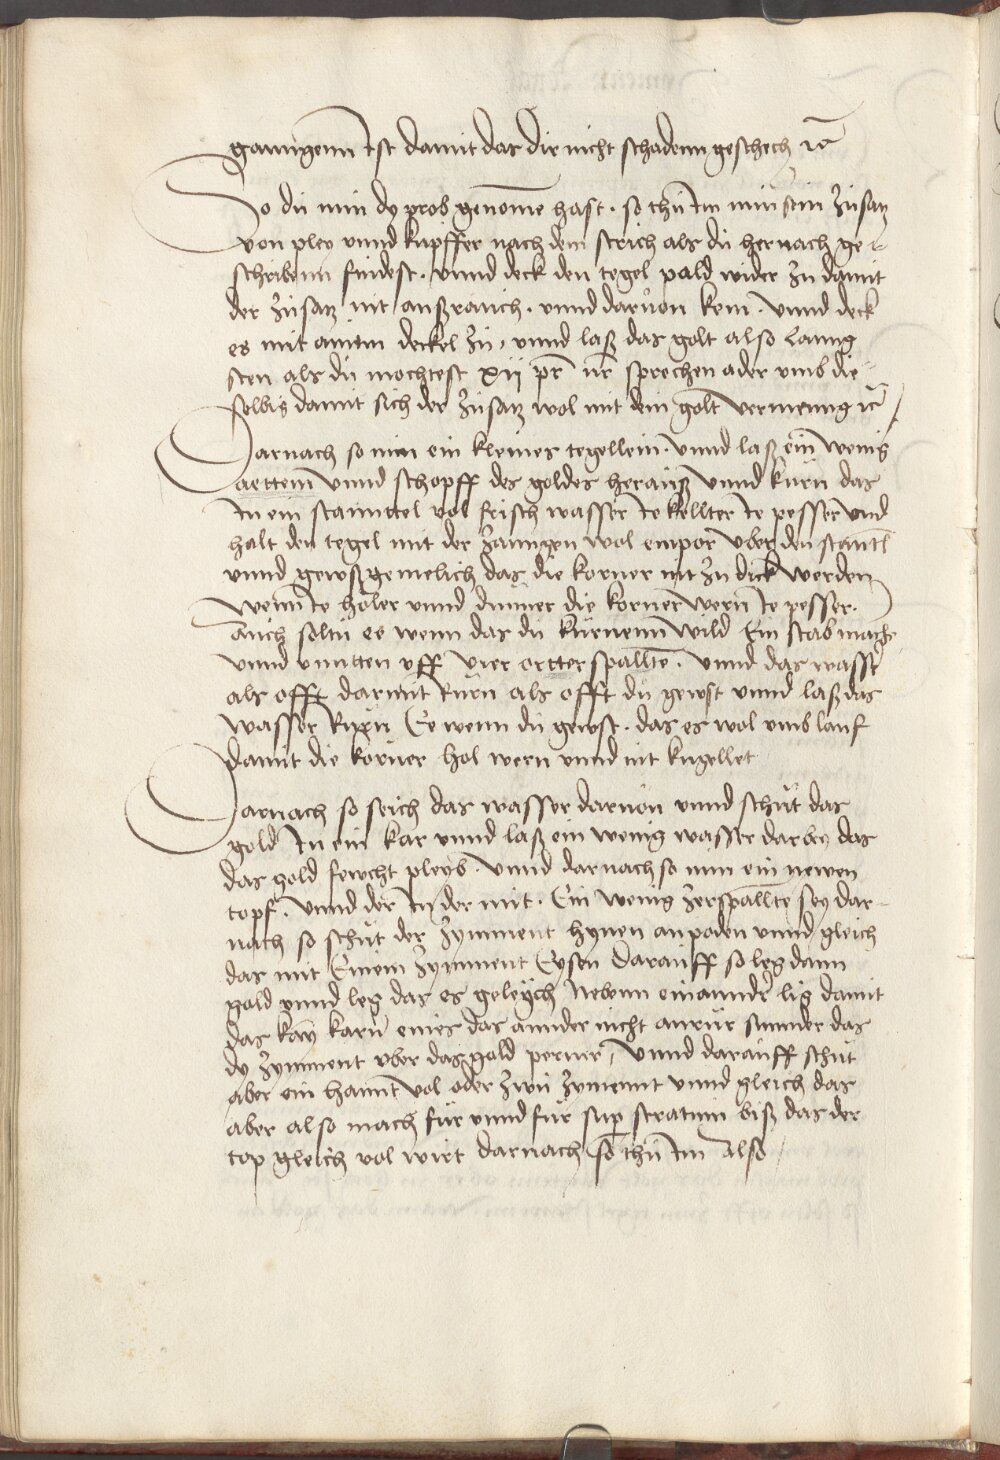 ganngenn ist damit das dir nicht schadenn geschech etc
So du nun dy prob genomē hast · so thu im nun sein zusatz
von pley vnnd kupffer nach dem strich als du hernach ge
schribenn findest · vnnd deck den tegel pald wider zu damit
der zusatz nit außrauch · vnnd daruon kem · vnnd deck
es mit ainem deckel zu, vnnd laß das golt also lanng
sten als du mochtest xij pr nr sprechen ader vmb die
selbig damit sich der zusatz wol mit dem golt vermenng etc
Darnach so nim ein kleines tegellein · vnnd laß ein wenig
vnnd schopff des goldes herauß vnnd kurn das
in ein stanntel vol frisch wasser ie kellter ie pesser vnd
halt den tegel mit der zanngen wol empor vber den stantl
vnnd gewß gemelich das die korner nit zu dick werden
wenn ie holer vnnd dunner die korner wern ie pesser ·
auch soltu ee wenn das du kurnenn wild Ein stab mach
vnnd vnntten vff vier ortter spallte · vnnd das wasser
als offt darmit rurn als offt du gewst vnnd laß das
wasser rurn Ee wenn du gewst · das es wol vmb lauf
damit die korner hol wern vnnd nit kugellet
Darnach so seich das wasser daruon vnnd schut das
gold in ein kar vnnd laß ein wenig wasser darbey das
das gold fewcht pleyb · vnnd darnach so nim ein newen
topf · vnnd der in der mit · Ein wenig zerspallte sey dar
nach so schut der zymment hynen an poden vnnd gleich
das mit Einem zymment Eysen darauff so leg dann
gold vnnd leg das es geleych nebenn einannder lig damit
das kay karn eines das annder nicht anrur sunnder das
dy zymment vber das gold perurr, vnnd darauff schut
aber ein hannt vol oder zwu zymennt vnnd gleich das
aber also mach fur vnnd fur sup stratum biß das der
top gleich vol wirt darnach so thu im also